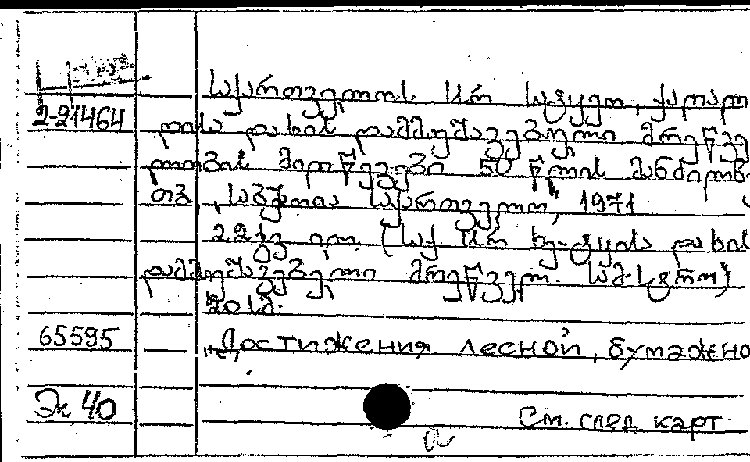 საქართველოს სსრ სატყეო, ქაღალ
2-21464 დისა და ხის დამმუშავებელი მრეწვე
ლობის მიღწევები 50 წლის მანძილზ
თბ., საბჭოთა საქართველო, 1971
22გვ. (საქ სსრ ხე-ტყისა და ხის
დამმუშავებელი მრეწველ. სამ-სტრო)
20სმ.
65595 Достижения лесной, бумажно
Эк 40 См. след карт